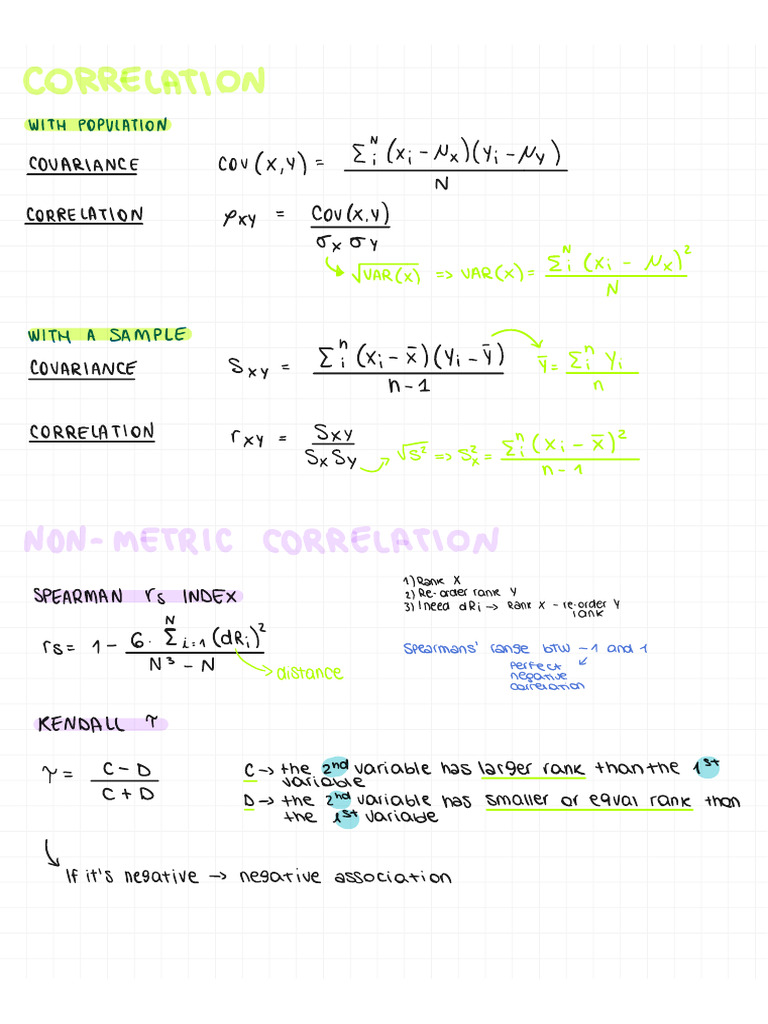 CORRELATION
WITH POPULATION
COVARIANCE COV(X,Y) = Σᵢᴺ (Xᵢ - μₓ)(Yᵢ - μ_Y) / N
CORRELATION ρ_XY = COV(X,Y) / σ_X σ_Y
√VAR(X) => VAR(X) = Σᵢᴺ (Xᵢ - μₓ)² / N
WITH A SAMPLE
COVARIANCE S_XY = Σᵢⁿ (Xᵢ - X̄)(Yᵢ - Ȳ) / n-1 Ȳ = Σᵢⁿ Yᵢ / n
CORRELATION r_XY = S_XY / S_X S_Y √S² => S²ₓ = Σᵢⁿ (Xᵢ - X̄)² / n-1
NON-METRIC CORRELATION
SPEARMAN rs INDEX
1) Rank X
2) Re-order rank Y
3) I need dRi → Rank X - re-order Y
rank
rs = 1 - 6 · Σᴺᵢ₌₁ (dRᵢ)² / N³ - N
distance
Spearmans' range BTW -1 and 1
perfect
negative
correlation
KENDALL τ
τ = C - D / C + D
C → the 2nd variable has larger rank than the 1st
variable
D → the 2nd variable has smaller or equal rank than
the 1st variable
If it's negative → negative association